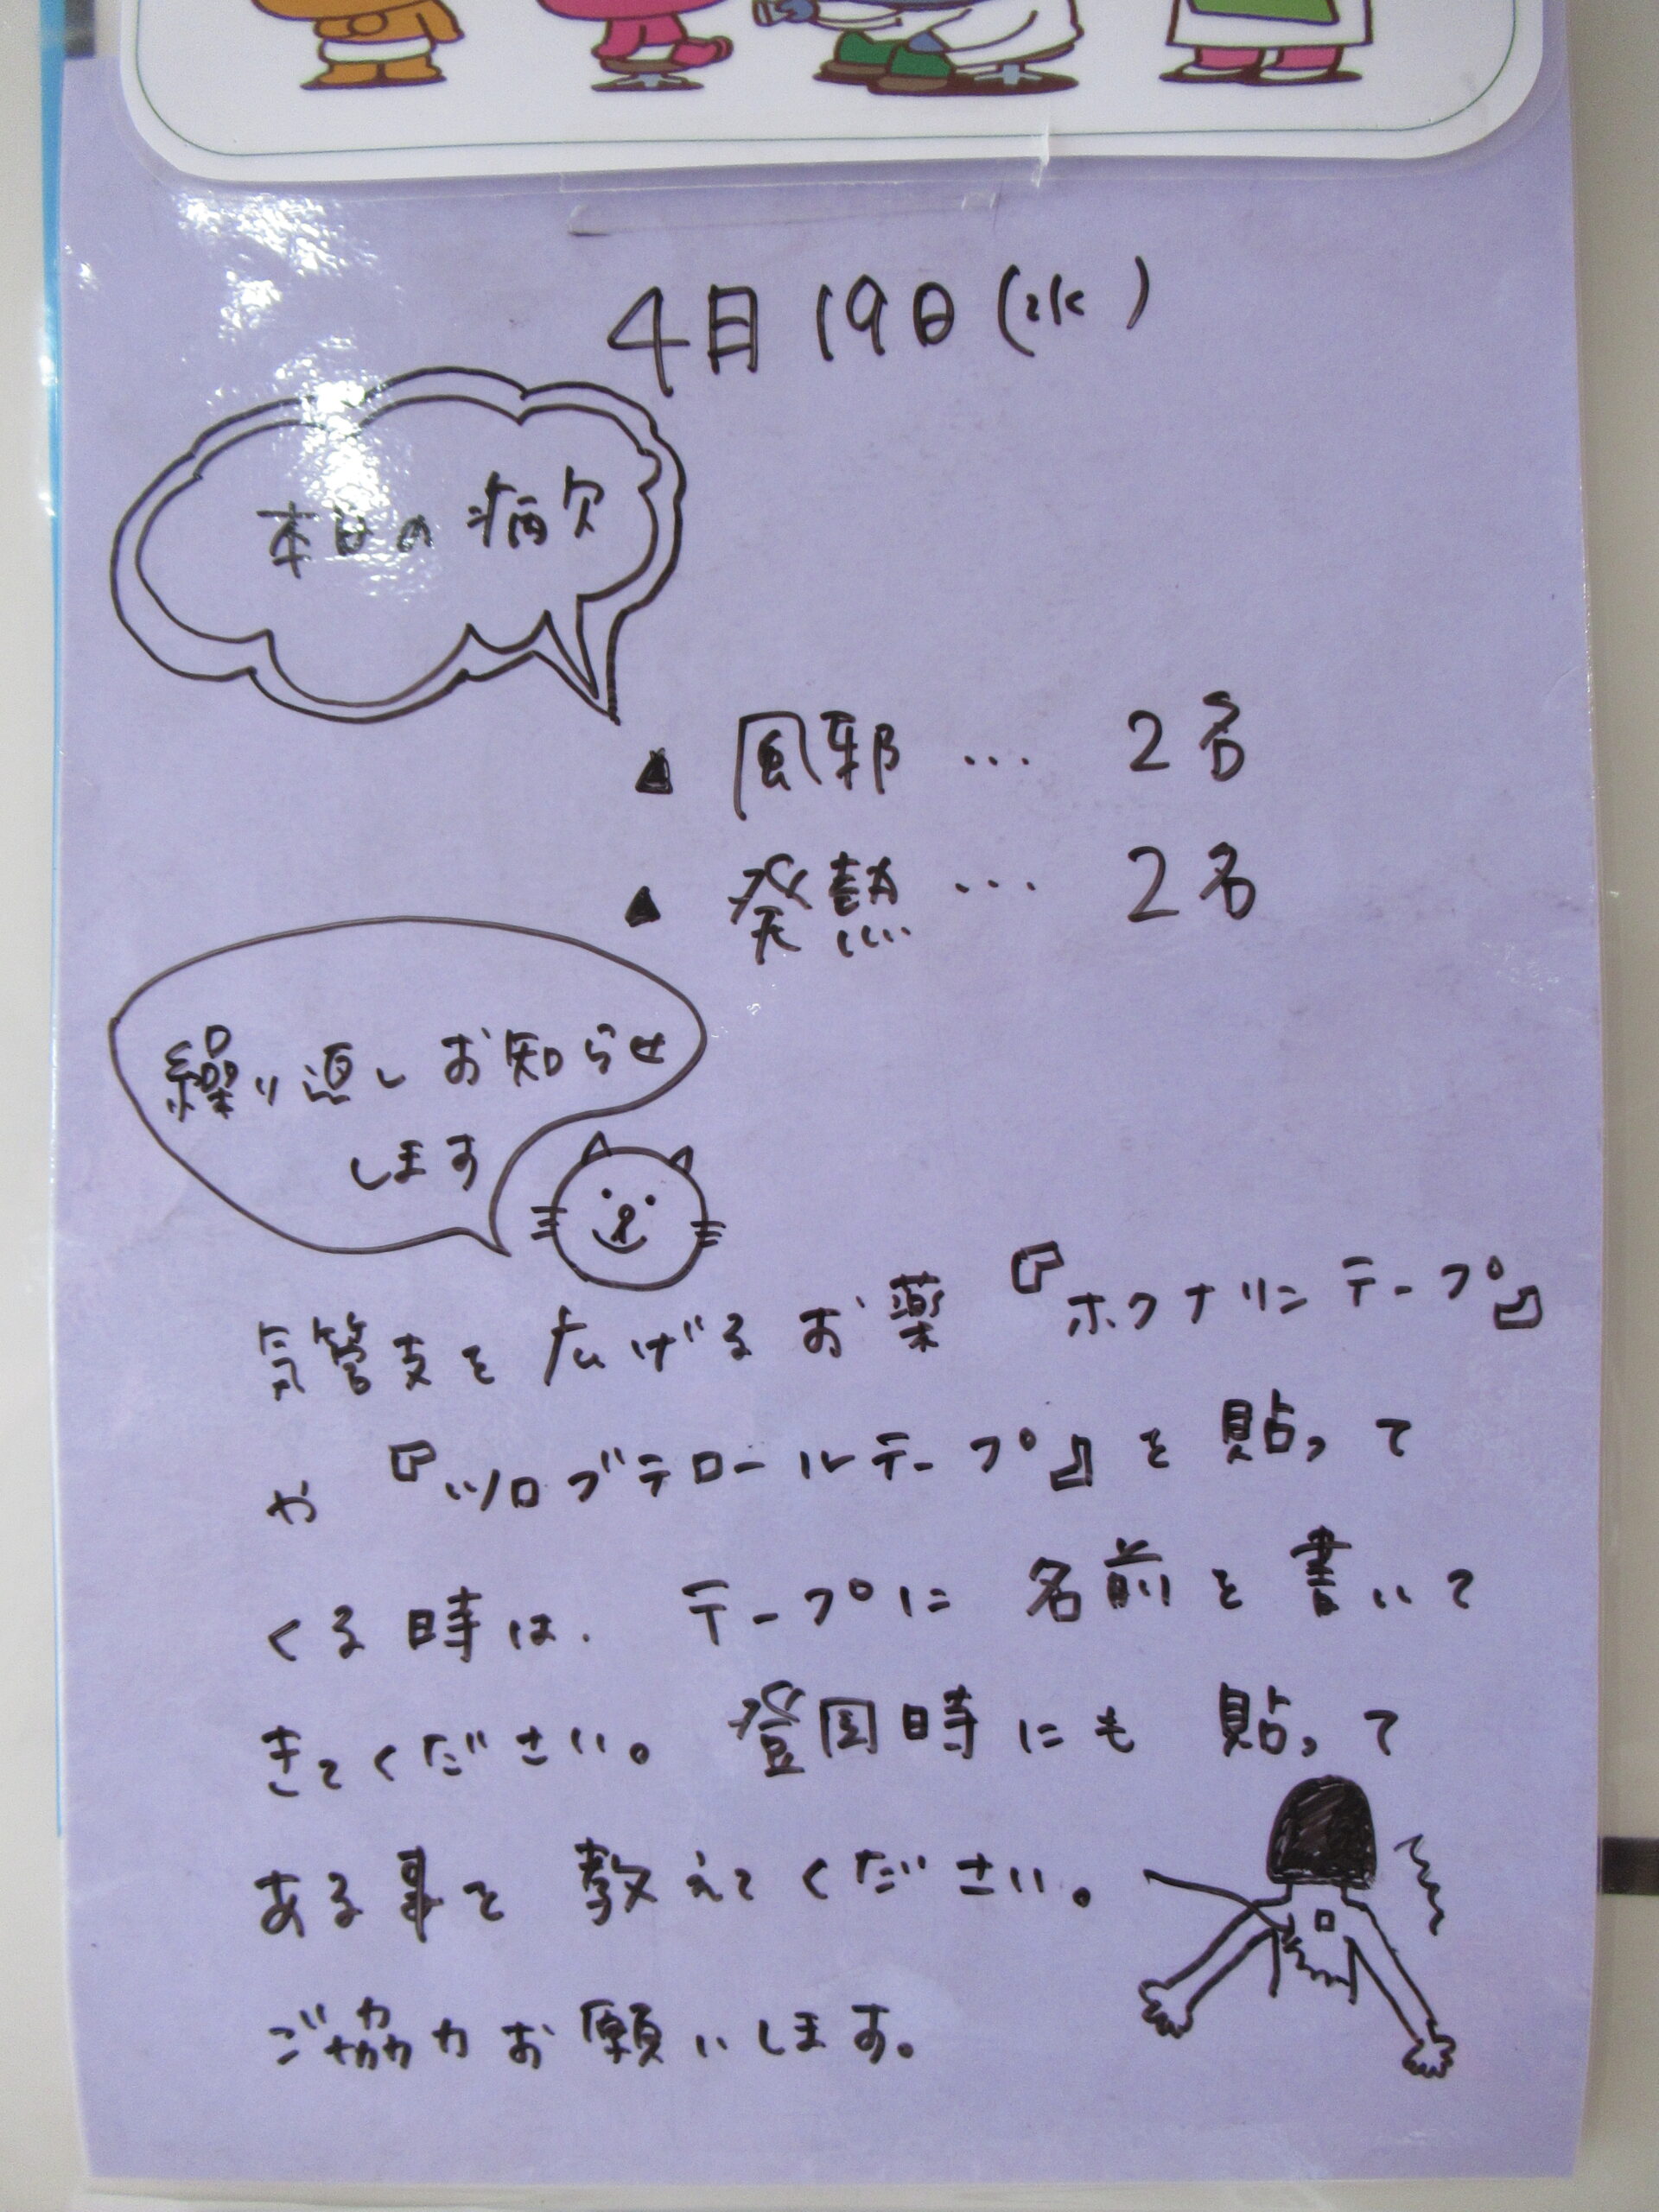 4月19日(水)
本日の病欠
▲ 風邪 … 2名
▲ 発熱 … 2名
繰り返しお知らせ
します
気管支を広げるお薬『ホクナリンテープ』
や『ツロブテロールテープ』を貼って
くる時は、テープに名前を書いて
きてください。登園時にも貼って
ある事を教えてください。
ご協力お願いします。